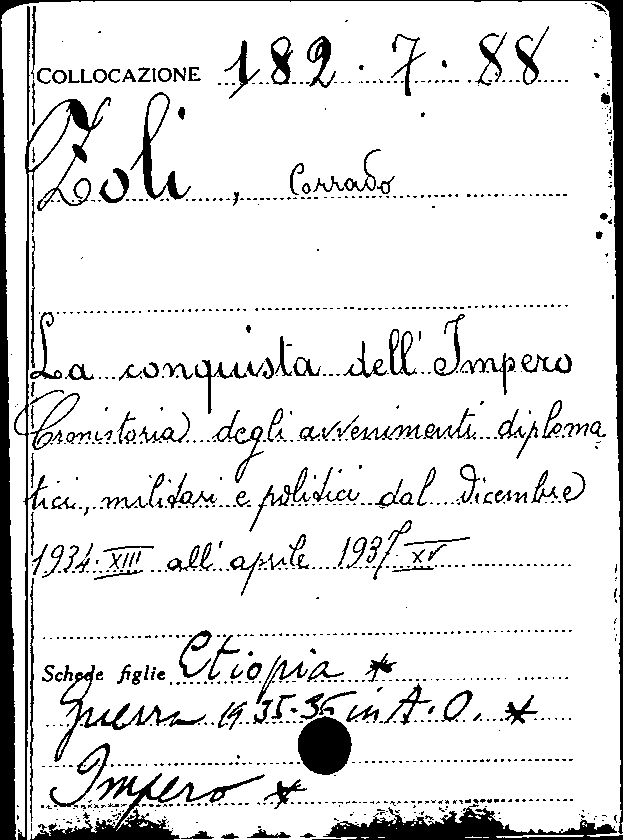 COLLOCAZIONE 182.7.88
Zoli, Corrado
La conquista dell'Impero
Cronistoria degli avvenimenti diploma
tici, militari e politici dal dicembre
1934-XIII all'aprile 1937-XV
Schede figlie Etiopia *
guerra 1935-36 in A.O. *
Impero *